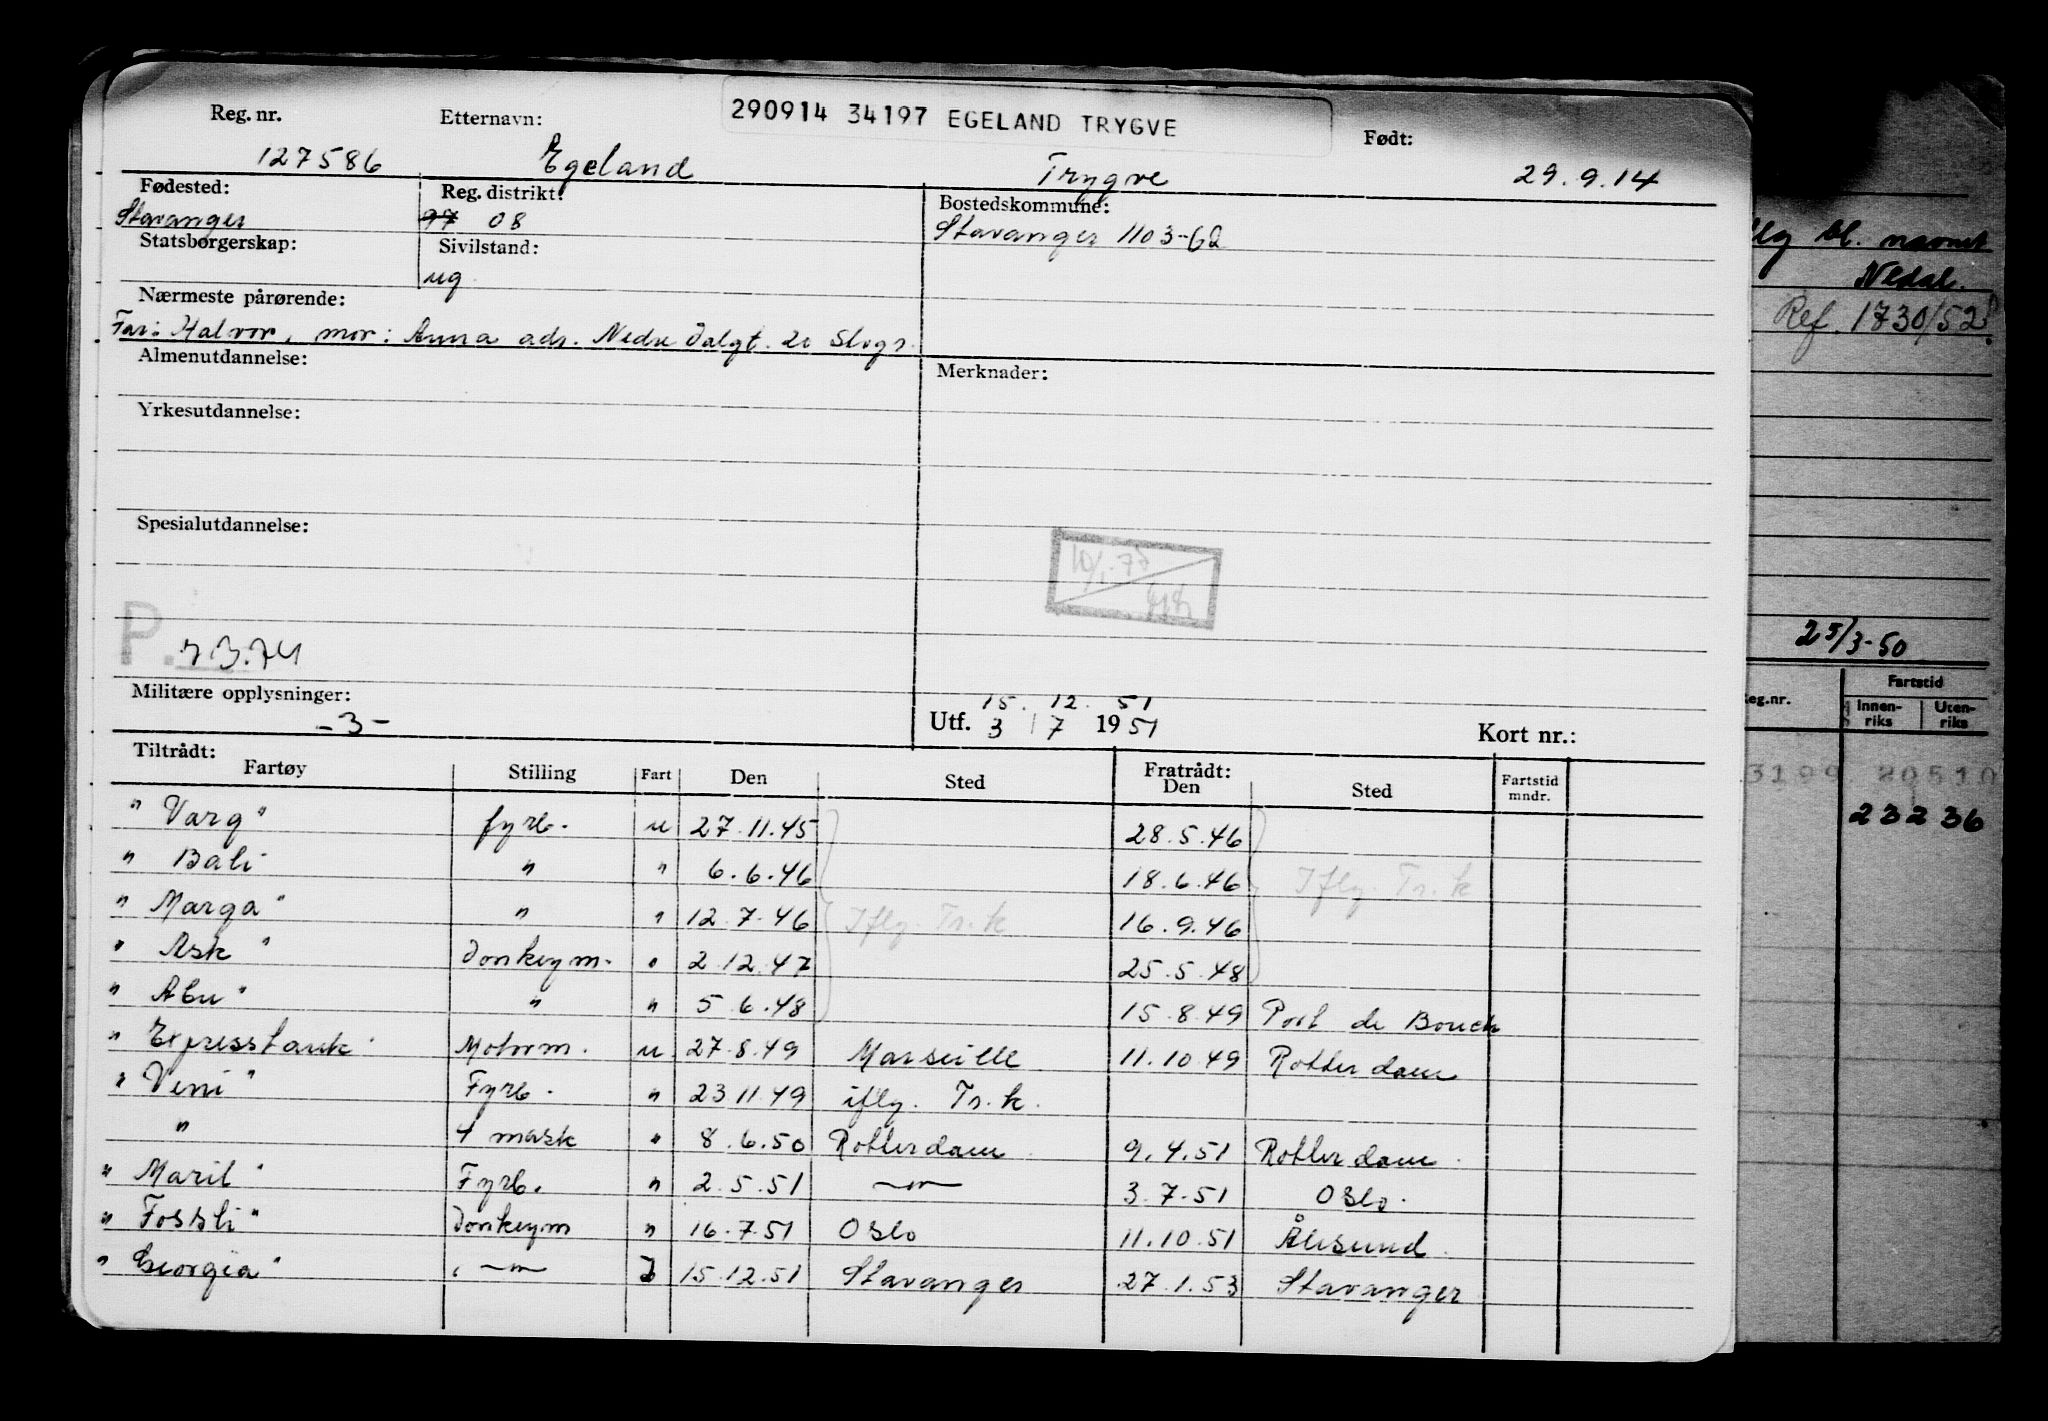 290914 34197 EGELAND TRYGVE
Reg. nr. Etternavn: Født:
127586 Egeland Trygve 29.9.14
Fødested: Reg. distrikt: Bostedskommune:
Stavanger 97 08 Stavanger 1103-62
Statsborgerskap: Sivilstand:
ug.
Nærmeste pårørende:
Far: Halvor, mor: Anna adr. Nedre Dalgt. 20 Stvgr.
Almenutdannelse: Merknader:
Yrkesutdannelse:
Spesialutdannelse:
P. 7.3.74
Militære opplysninger: 15. 12. 51
-3- Utf. 3 / 7 1951 Kort nr.:
Tiltrådt: Fratrådt:
Fartøy Stilling Fart Den Sted Den Sted Fartstid mndr.
" Varg " fyrb. u 27.11.45 28.5.46
" Bali " " 6.6.46 18.6.46 Iflg. Tr.k
" Marga " " " 12.7.46 Iflg. Tr.k 16.9.46
" Ask " Donkeym. " 2.12.47 25.5.48
" Abu " " " 5.6.48 15.8.49 Port de Bouch
" Expresstank " Motorm. u 27.8.49 Marseille 11.10.49 Rotterdam
" Veni " Fyrb. " 23.11.49 iflg. Tr.k.
" 4 mask " 8.6.50 Rotterdam 9.4.51 Rotterdam.
" Marit " Fyrb. " 2.5.51 —"— 3.7.51 Oslo.
" Fossli " Donkeym " 16.7.51 Oslo 11.10.51 Ålesund.
" Georgia " —"— 15.12.51 Stavanger 27.1.53 Stavanger
bl. navnet
Nedal.
Ref. 1730/52
25/3-50
eg.nr. Fartstid
Innenriks Utenriks
3199 20510
23236